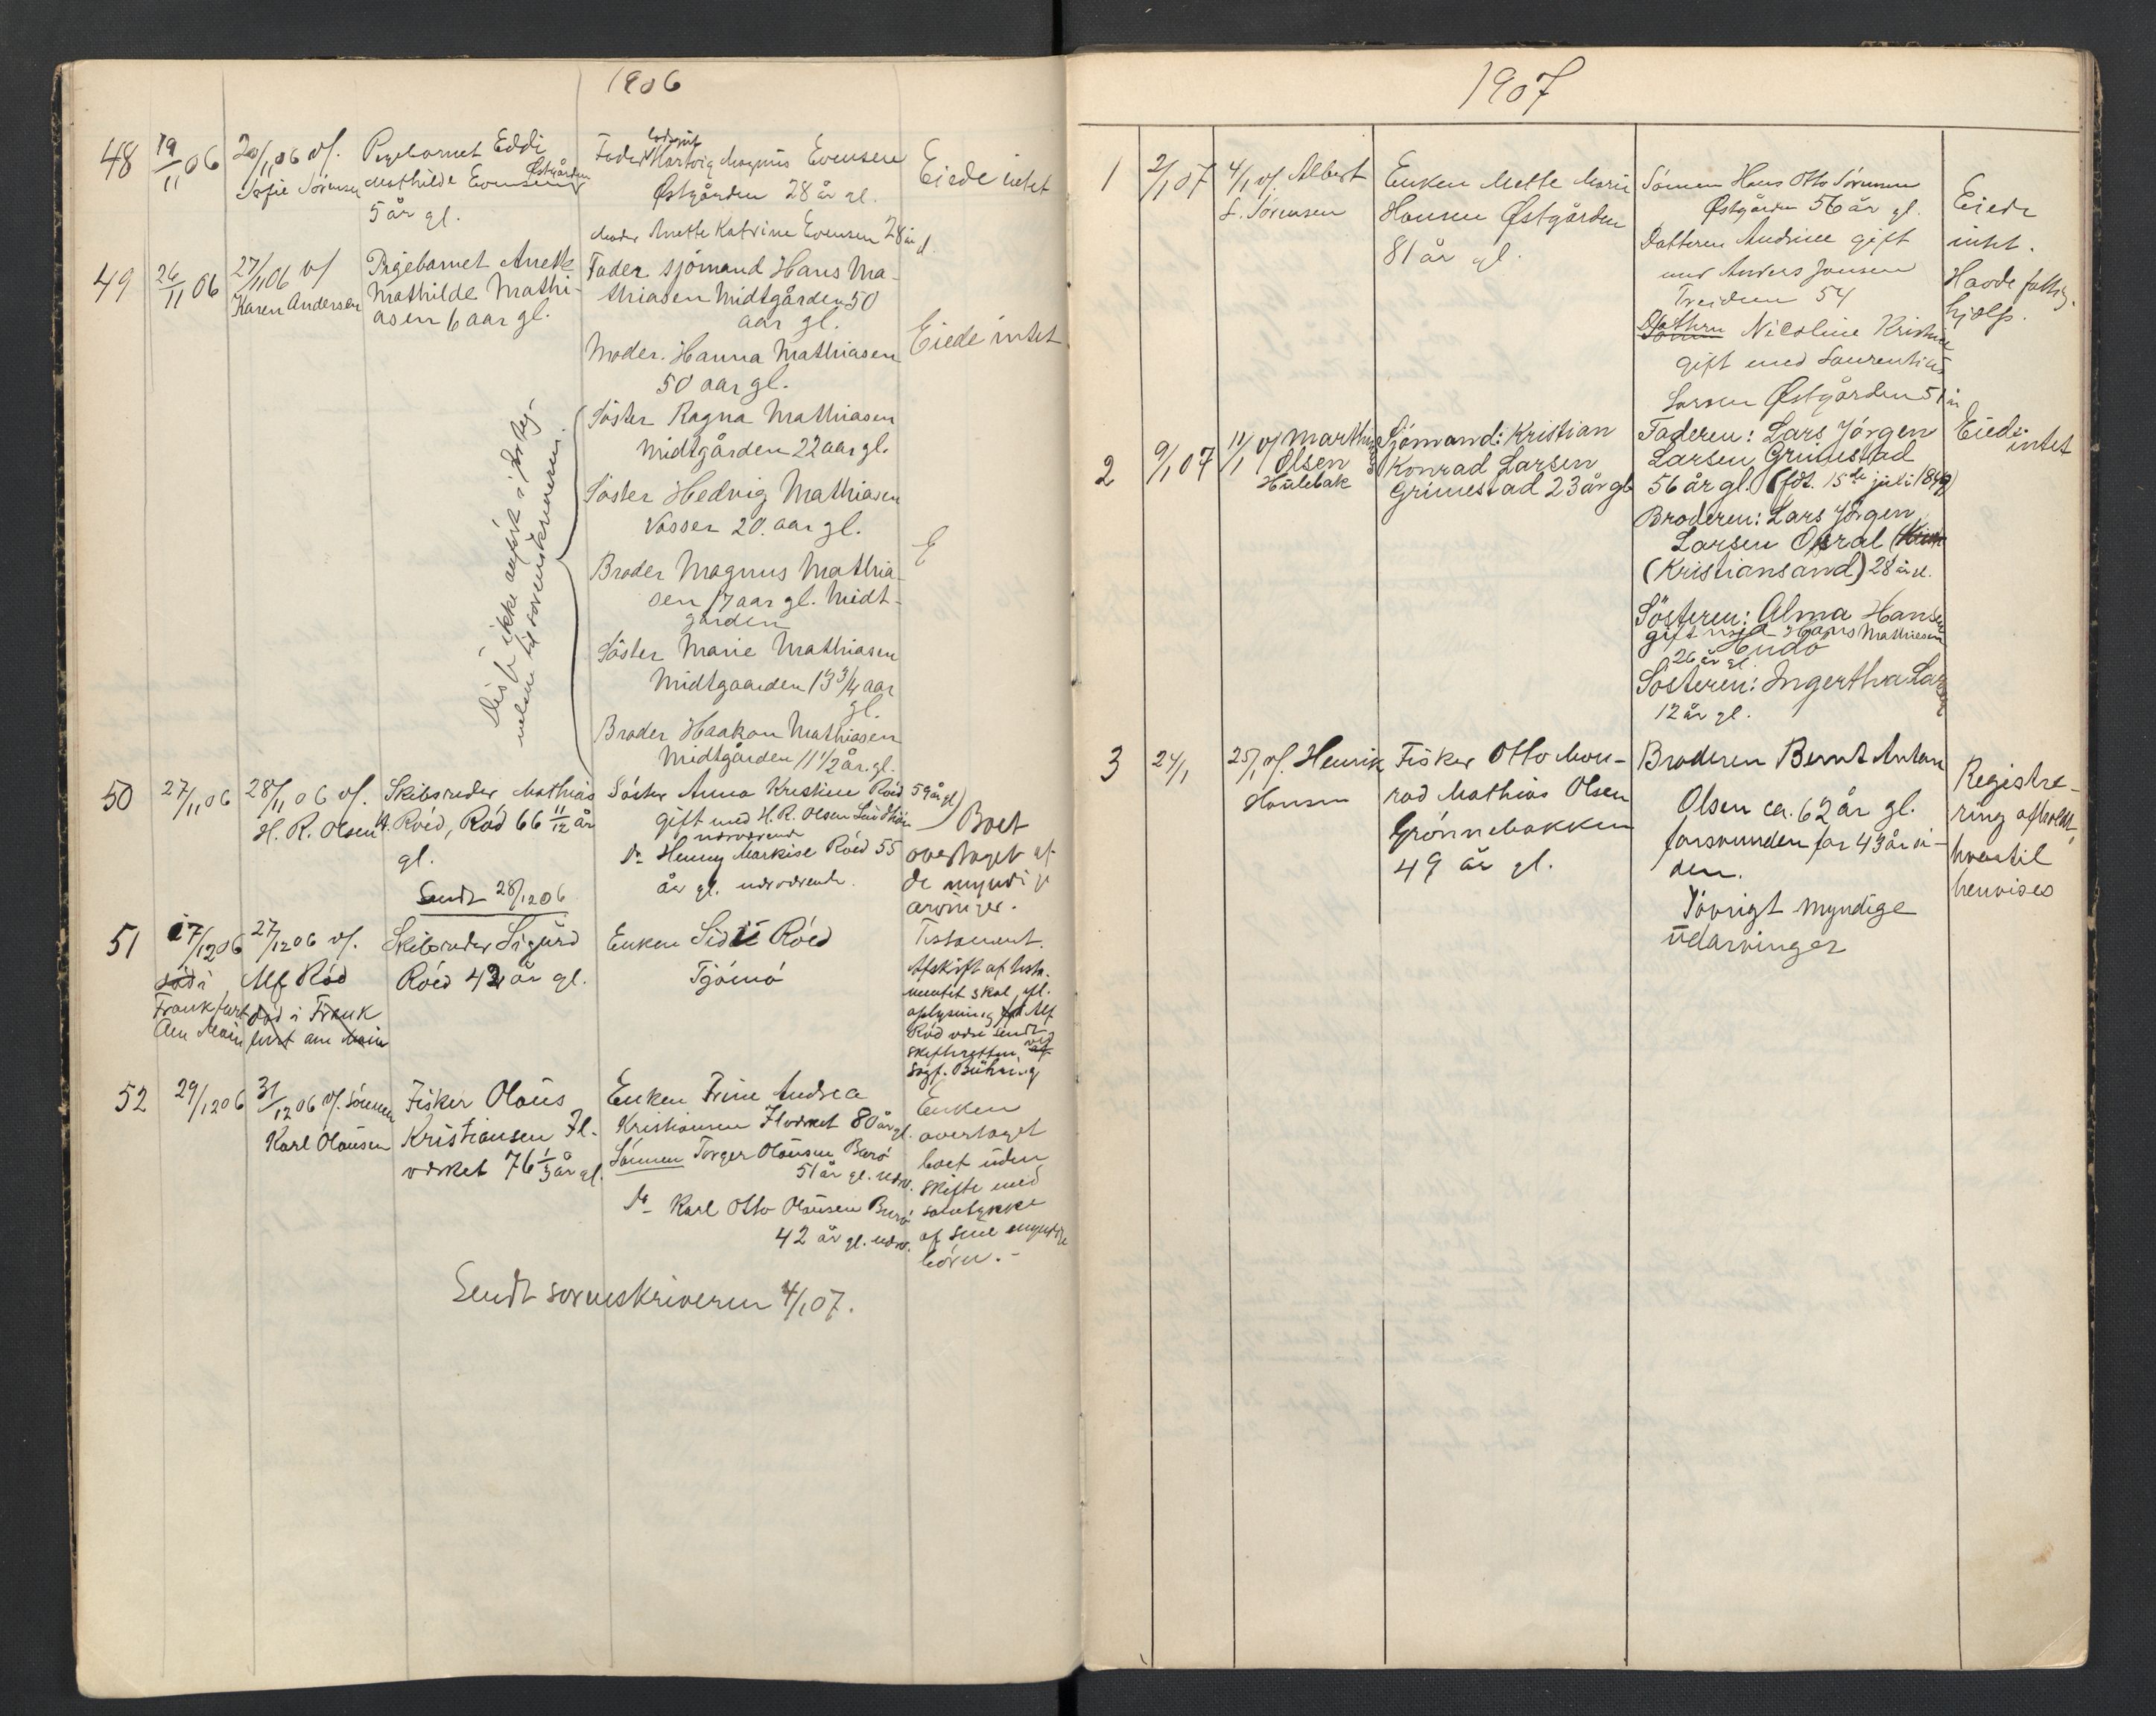 1906
48
19/11 06
20/11 06 v/.
Sofie Sörensen
Pigebarnet Eddi
Mathilde Evensen
Østgården
5 år gl.
Fader Hartvig Magnus Evensen
Østgården 28 år gl.
Moder Anette Katrine Evensen 28 år
Eiede intet
49
26/11 06
27/11 06 v/
Karen Andersen
Pigebarnet Anette
Mathilde Mathi-
asen 6 aar gl.
Fader sjömand Hans Ma-
thiasen Midtgården 50
aar gl.
Moder. Hanna Mathiasen
50 aar gl.
Söster Ragna Mathiasen
Midtgården 22 aar gl.
Söster Hedvig Mathiasen
Vasser 20. aar gl.
Broder Magnus Mathia-
sen 17 aar gl. Midt-
gården
Söster Marie Mathiasen
Midtgaarden 13 3/4 aar
gl.
Broder Haakon Mathiasen
Midtgården 11 1/2 år. gl.
Eiede intet
E
ikke anført i forteg-
nelsen til sorenskriveren.
50
27/11 06
28/11 06 v/.
H. R. Olsen
Skibsreder Mathias
H. Röed, Röd 66 11/12 år
gl.
Sendt 28/12 06
Söster Anna Kristine Röed 59 år gl.
gift med H. R. Olsen
nærværende
Do Henny Markise Röed 55
år gl. nærværende.
Boet
overtaget af
de myndige
arvinger.
51
17/12 06
död i
Frankfurt
am Main
27/12 06 v/.
Alf Röd
död i Frank
furt am Main
Skibsreder Sigurd
Röed 42 år gl.
Enken Röed
Tjömö
Testament.
Afskrift af testa-
mentet skal, efl.
oplysning fra Alf
Röd være sendt
skifteretten ved
Sagf. Bühring
52
29/12 06
31/12 06 v/. Sönnen
Karl Olausen
Fisker Olaus
Kristiansen Fl-
værket 76 1/3 år gl.
Enken Trine Andrea
Kristiansen Flværket 80 år gl.
Sönnen Torger Olausen Burö
51 år gl. nærv.
Do Karl Otto Olausen Burö
42 år gl. nærv.
Enken
overtaget
boet uden
skifte med
samtykke
af sine myndige
börn. -
Sendt sorenskriveren 4/1 07.
1907
1
2/1 07
4/1 v/. Albert
L. Sörensen
Enken Mette Marie
Hansen Østgården
81 år gl.
Sönnen Hans Otto Sörensen
Østgården 56 år gl.
Datteren Andrine gift
med Anders Jensen
54
Datteren Nicoline Kristine
gift med Laurentius
Larsen Østgården 51 år
Eiede
intet.
Havde fattig-
hjælp.
2
9/1 07
11/1 v/ Marthin
Olsen
Hulebak
Sjömand: Kristian
Konrad Larsen
Grimestad 23 år gl.
Faderen: Lars Jörgen
Larsen Grimestad
56 år gl. (födt. 15de juli 1849)
Broderen: Lars Jörgen
Larsen
(Kristiansand) 28 år gl.
Sösteren: Alma Hansen
gift med Hans Mathiesen
26 år gl.
Sösteren: Ingertha Larsen
12 år gl.
Eiede
intet
3
24/1
25/1 v/. Henrik
Hansen
Fisker Otto Mon-
rad Mathias Olsen
Grönnebakken
49 år gl.
Broderen Bernt Anton
Olsen ca. 62 år gl.
forsvunden for 43 år si-
den.
Iövrigt myndige
udarvinger
Registre-
ring afholdt,
hvortil
henvises